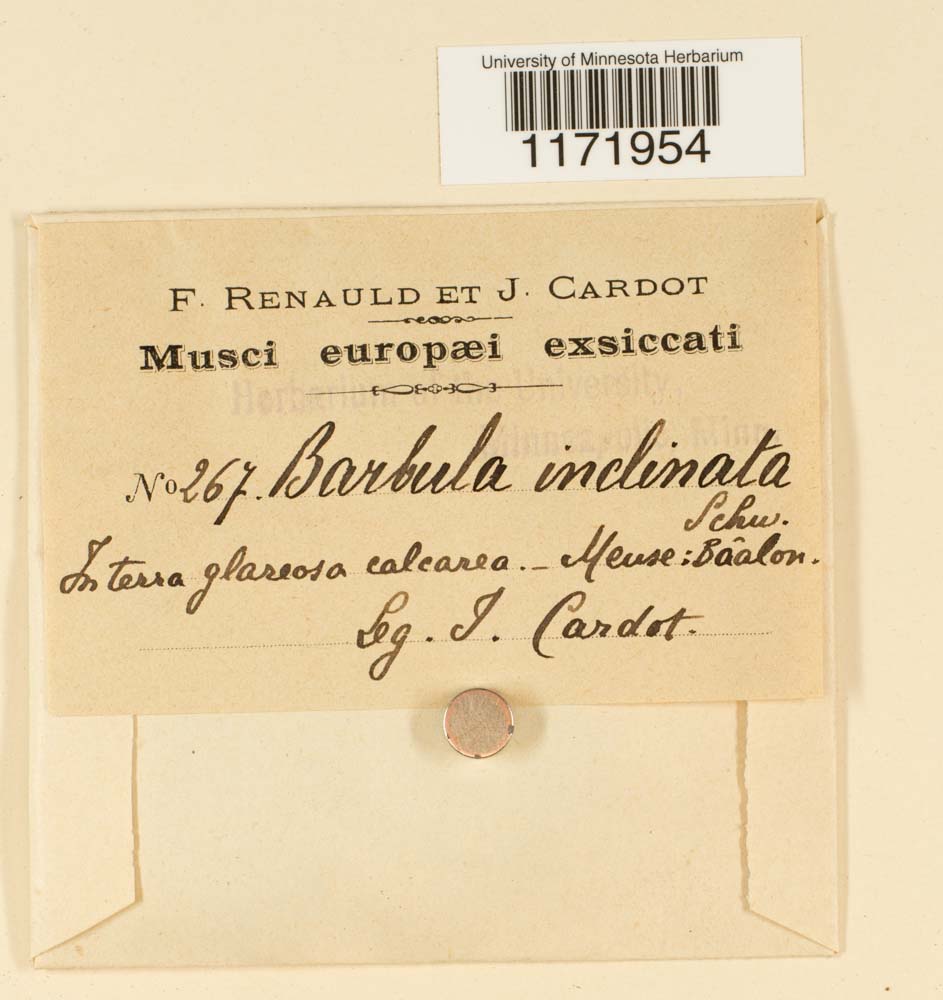 University of Minnesota Herbarium
1171954
F. RENAULD ET J. CARDOT
Musci europæi exsiccati
Herbarium of the University,
Minneapolis Minn.
No 267. Barbula inclinata
Schw.
In terra glareosa calcarea. – Meuse: Bâalon.
Leg. J. Cardot.